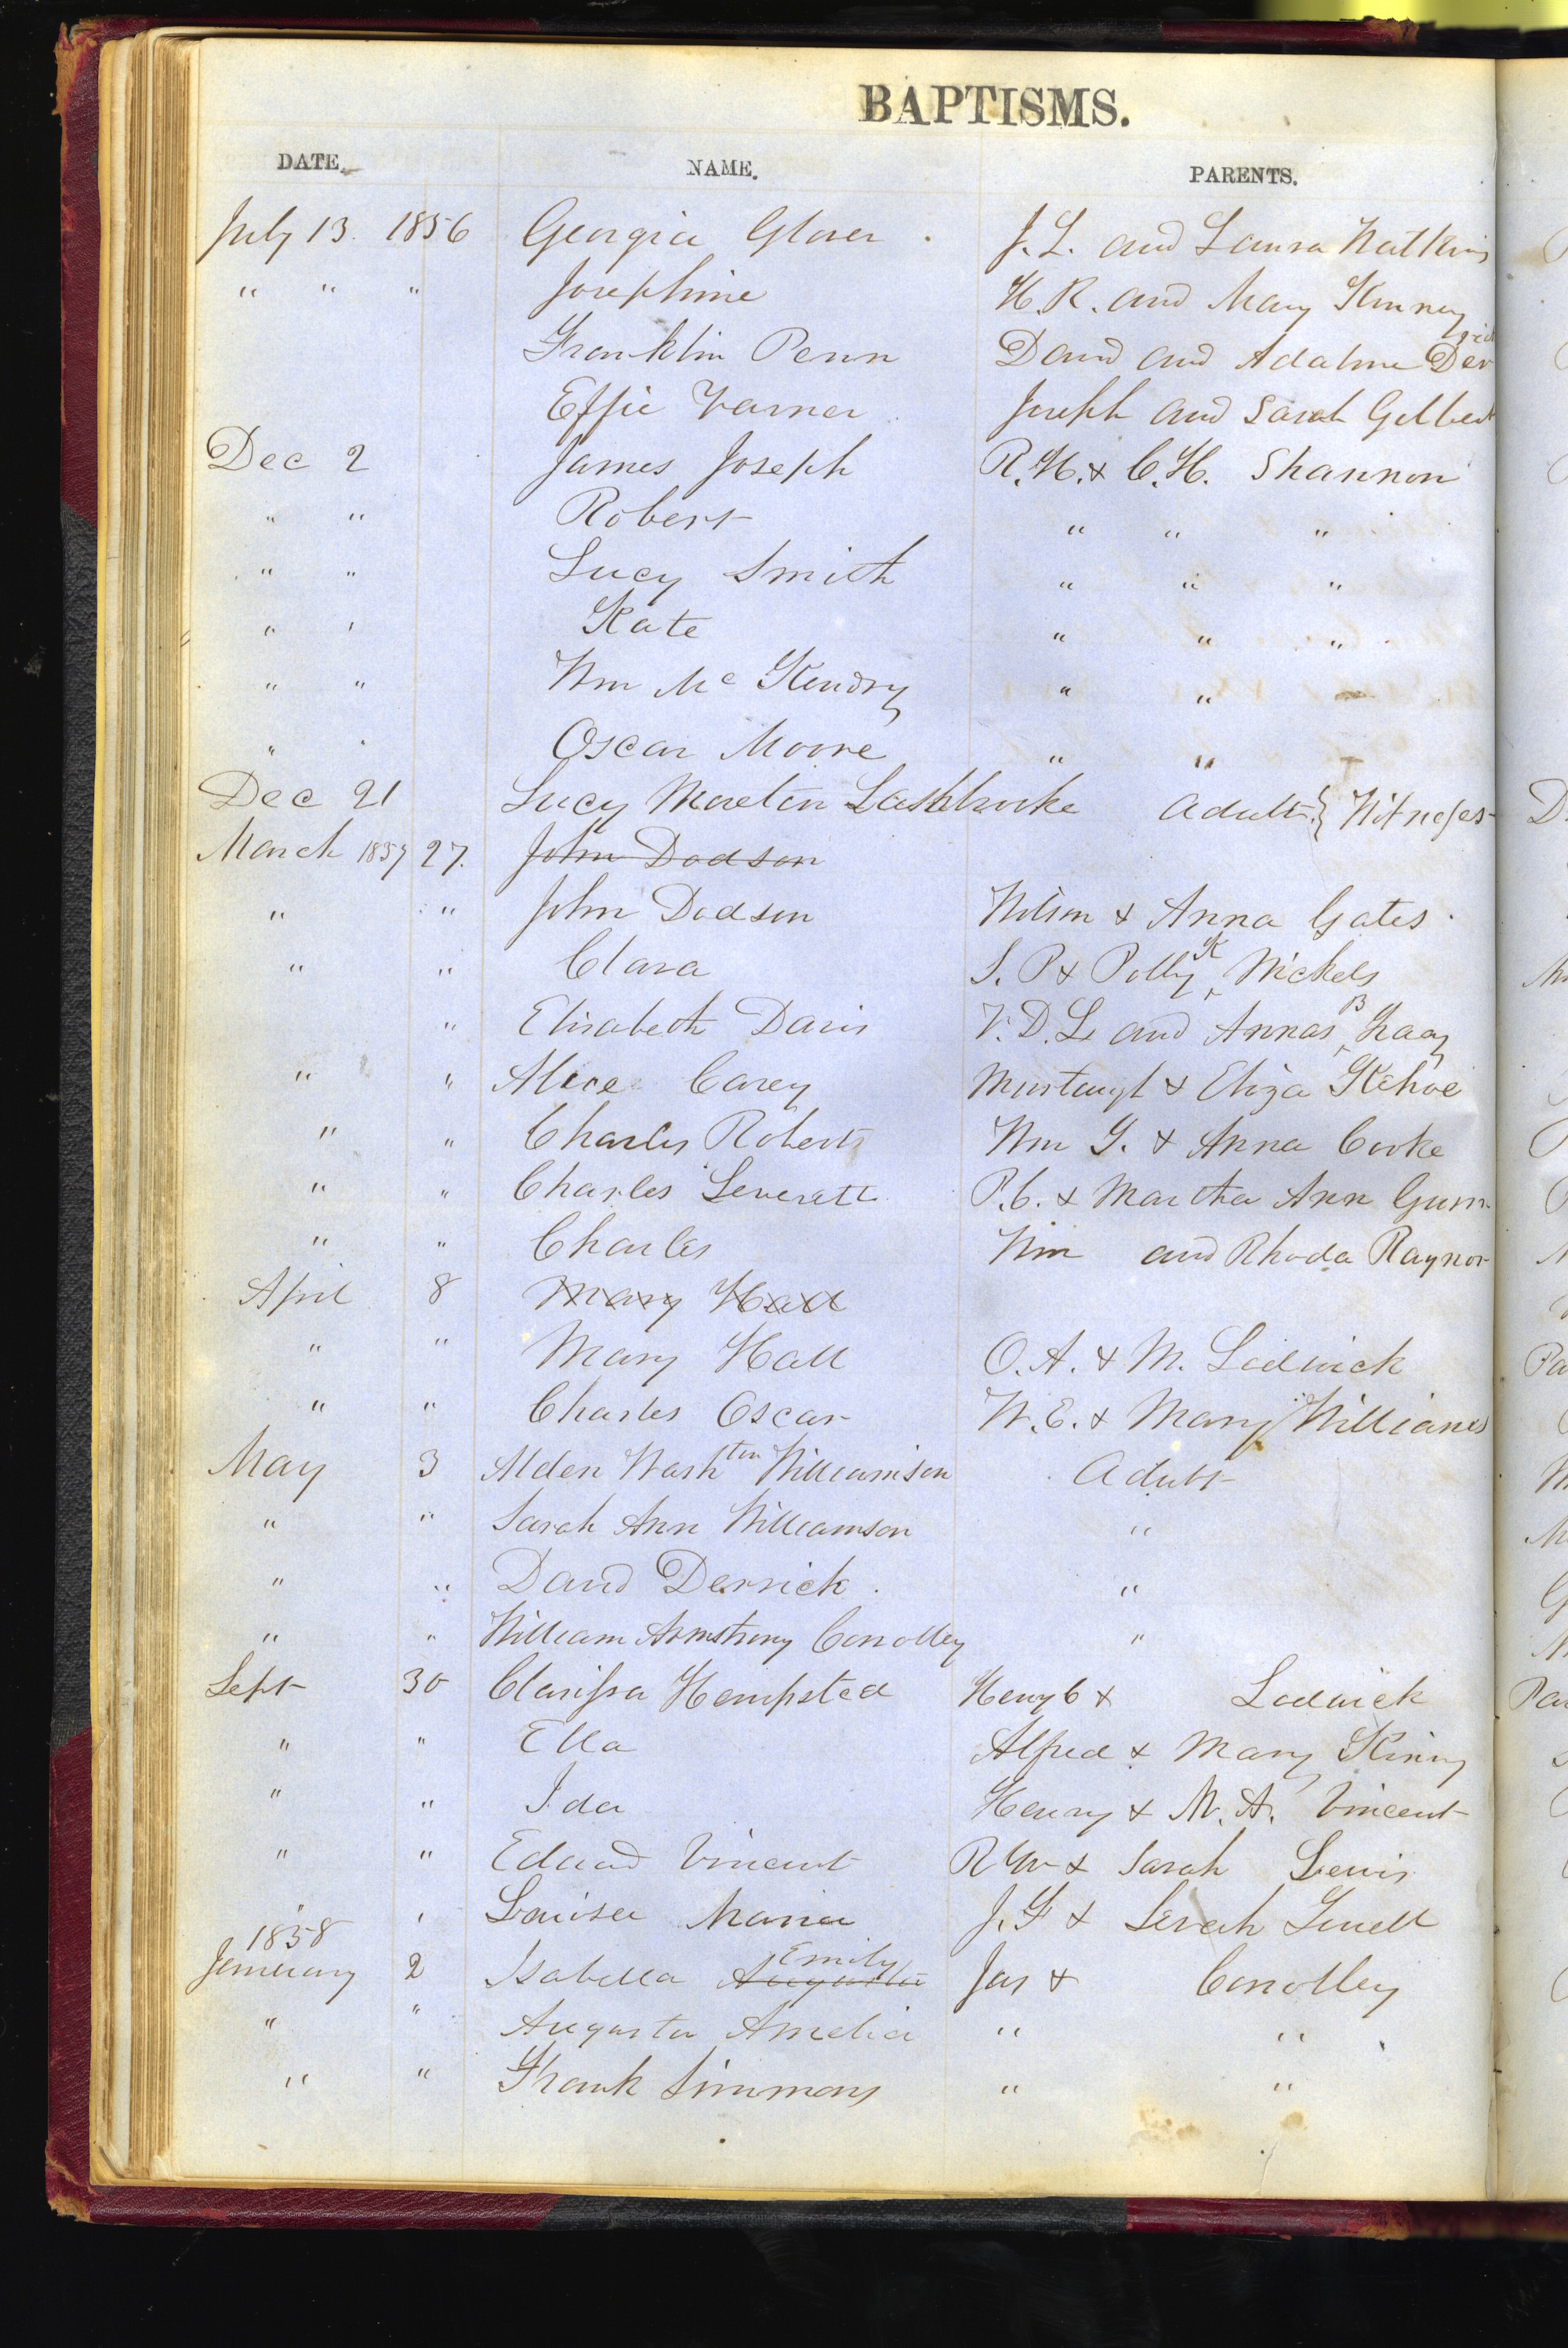 BAPTISMS.
DATE. NAME. PARENTS.
July 13. 1856 Georgia Glover . J. L. and Laura Watkins
" " " Josephine H. R. and Mary Kinney
Franklin Penn David and Adaline Derrick
Effie Varner Joseph and Sarah Gilbert
Dec 2 James Joseph R. H. & C. H. Shannon
" " Robert " " "
" " Lucy Smith " " "
" " Kate " " "
" " Wm Mc Kendry " "
" " Oscar Moore " "
Dec 21 Lucy Morton Lashbrooke Adult } Witnesses
March 1857 27. John Dodson
" " John Dodson Wilson & Anna Gates
" " Clara S. P & Polly K Nickels
" Elisabeth Davis V. D. L. and Annas B
" " Alice Carey & Eliza Kehoe
" " Charles Roberts Wm G. & Anna Cooke
" " Charles Leverett P. C. & Martha Ann Gunn
" " Charles Wm and Rhoda Raynor
April 8 Mary Hall
" " Mary Hall O. A. & M. Lodwick
" " Charles Oscar W. E. & Mary Williams
May 3 Alden Washton Williamson Adult
" " Sarah Ann Williamson "
" " David Derrick . "
" " William Armstrong Conolley "
Sept 30 Clarissa Hempsted Henry C & Lodwick
" " Ella Alfred & Mary Kinny
" " Ida Henry & M. A. Vincent
" " Edward Vincent R W & Sarah Lewis
" " Louisa Maria J. F & Sarah
1858
January 2 Isabella Augusta Emily Jas & Conolley
" " Augusta Amelia " "
" " Frank Simmons " "